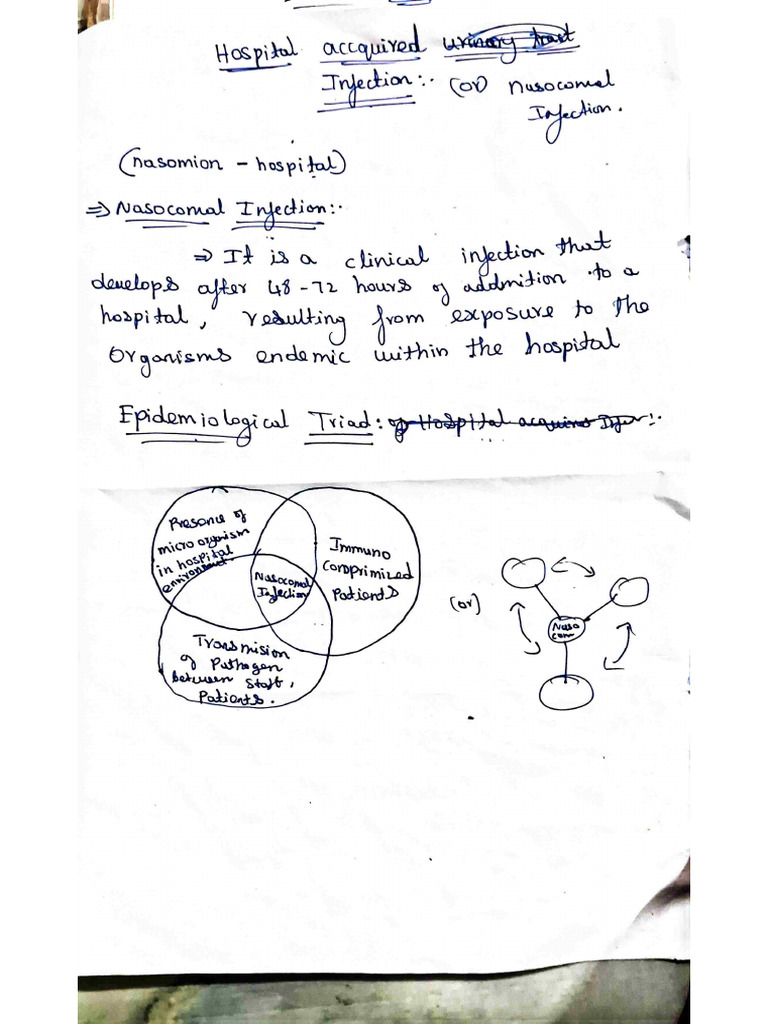 Hospital accquired urinary tract
Infection:- (or) Nusocomal
Infection.
(nasomion - hospital)
⇒ Nasocomal Infection:-
⇒ It is a clinical infection that
develops after 48-72 hours of addmition to a
hospital, resulting from exposure to the
Organisms endemic within the hospital
Epidemiological Triad: of Hospital acquired Infec :-
Presence of
micro organism
in hospital
environment.
Immuno
Comprimized
Patients
Nasocomal
Infection
Transmision
of Pathogen
between Staff,
Patients.
(or)
Naso
com